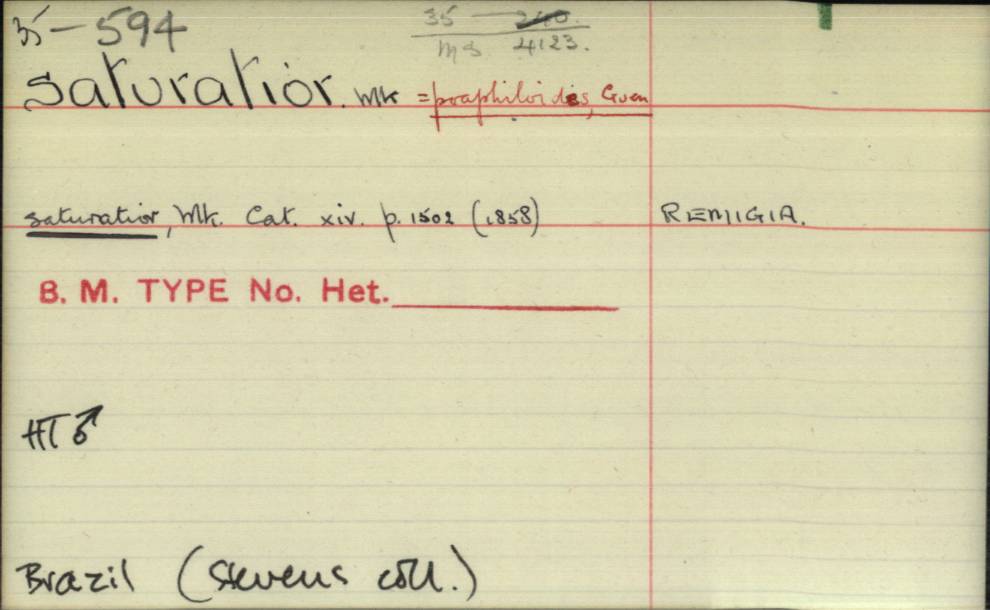 35-594
35 — 240.
MS 4123.
saturatior. Wlk =poaphiloides, Guen
saturatior, Wlk. Cat. xiv. p. 1502 (1858) REMIGIA.
B. M. TYPE No. Het.
HT ♂
Brazil (Stevens coll.)